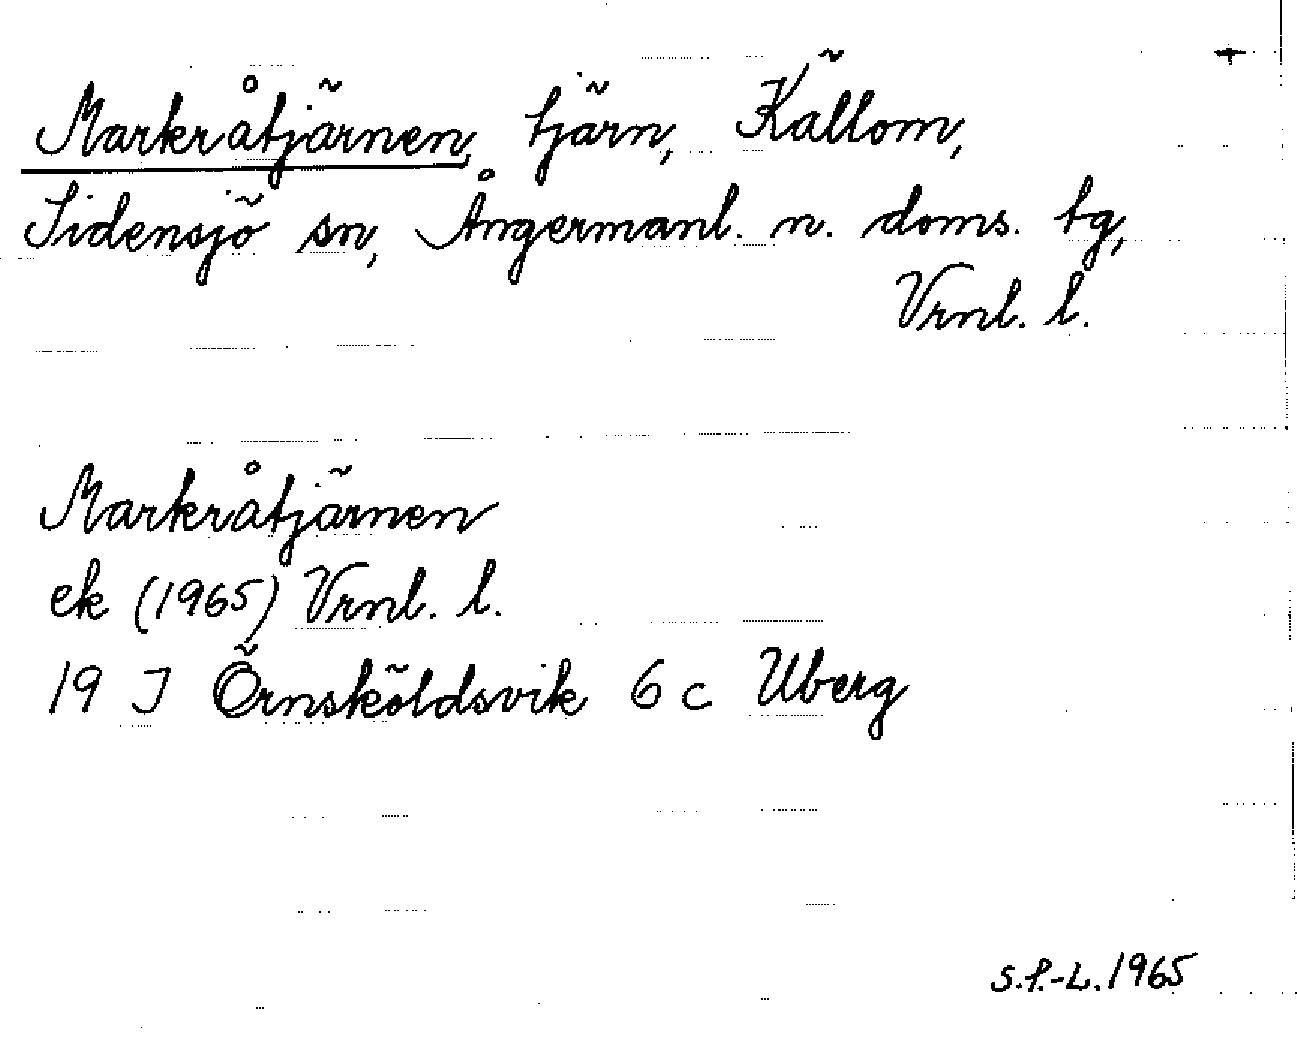 Markråtjärnen, tjärn, Källom,
Sidensjö sn, Ångermanl. n. doms. tg,
Vrnl. l.
Markråtjärnen
ek (1965) Vrnl. l.
19 J Örnsköldsvik 6 c Uberg
S.P.-L. 1965